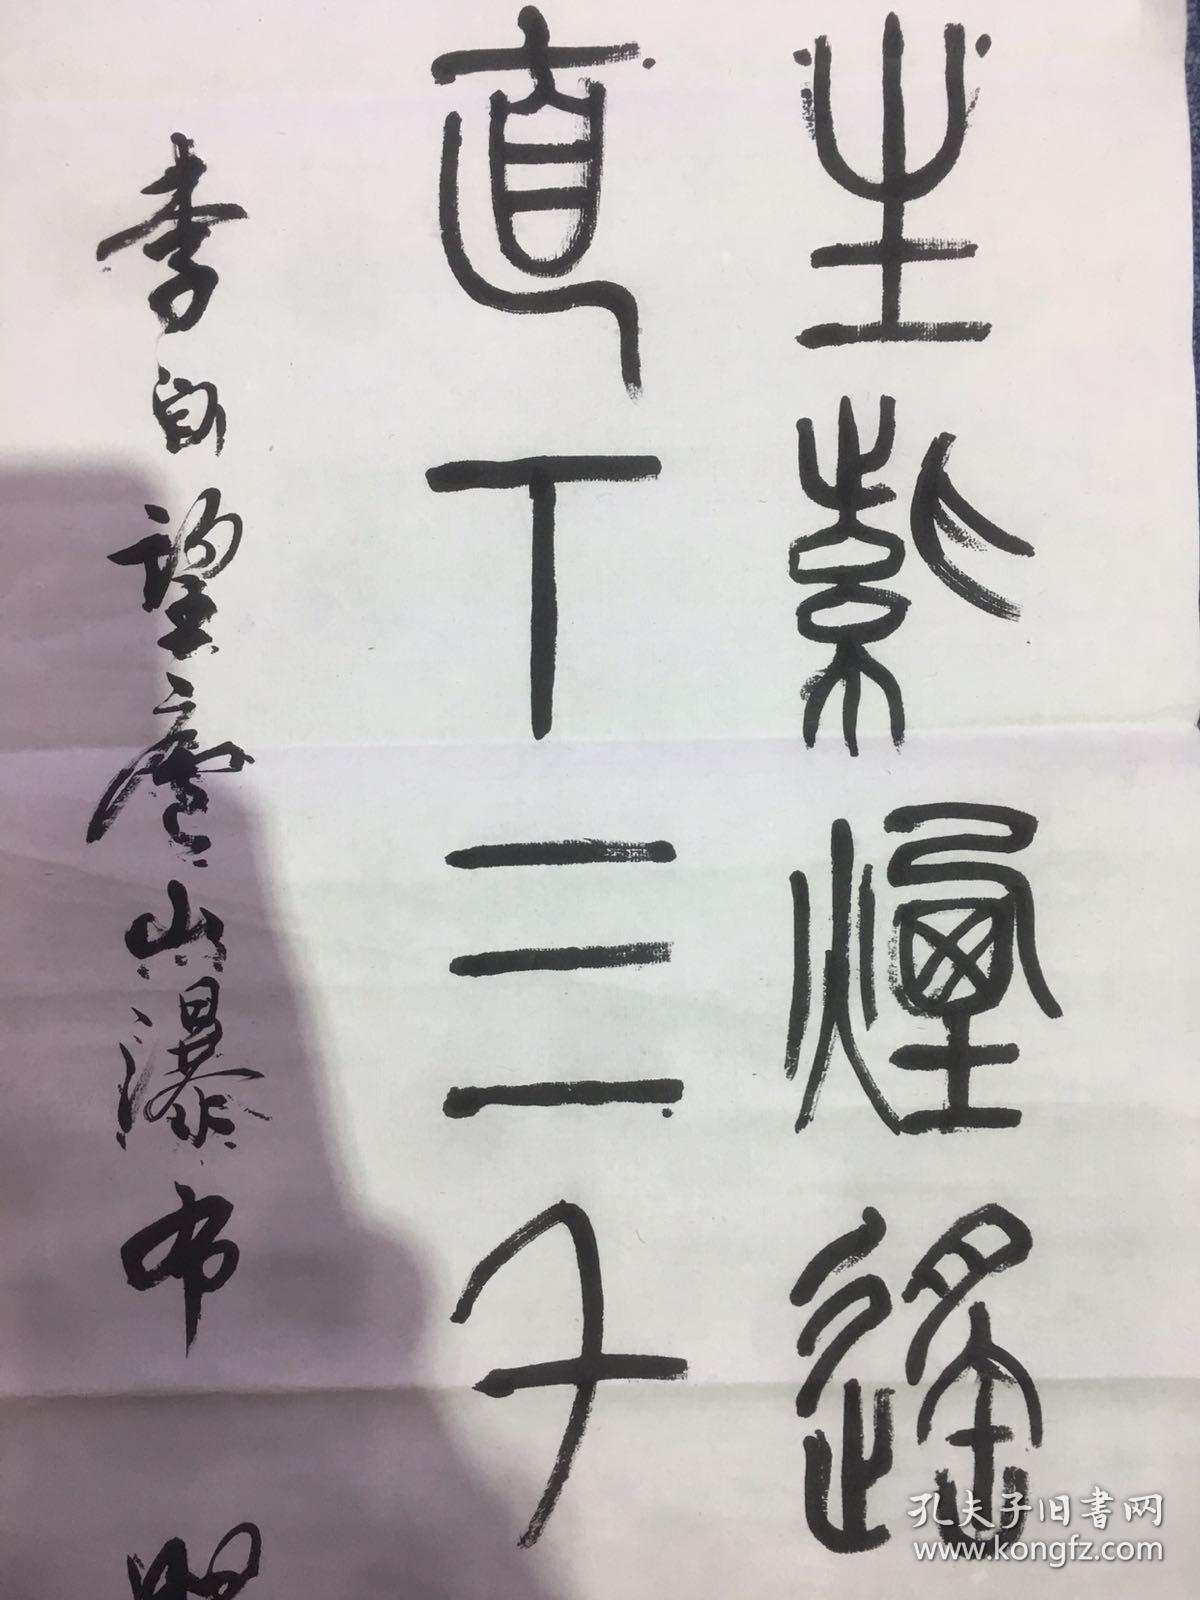 生紫煙遥
直下三千
李白望廬山瀑布
孔夫子旧書网
www.kongfz.com